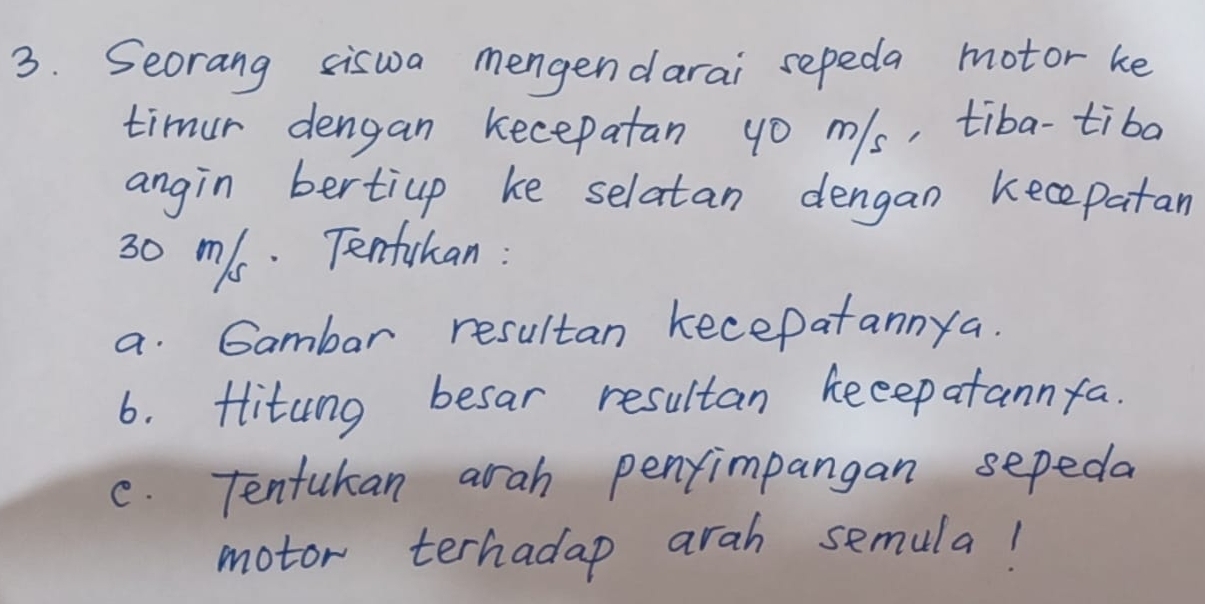 3. Seorang siswa mengendarai sepeda motor ke
timur dengan kecepatan 40 m/s, tiba-tiba
angin bertiup ke selatan dengan kecepatan
30 m/s. Tentukan :
a. Gambar resultan kecepatannya.
b. Hitung besar resultan kecepatannya.
c. Tentukan arah penyimpangan sepeda
motor terhadap arah semula !